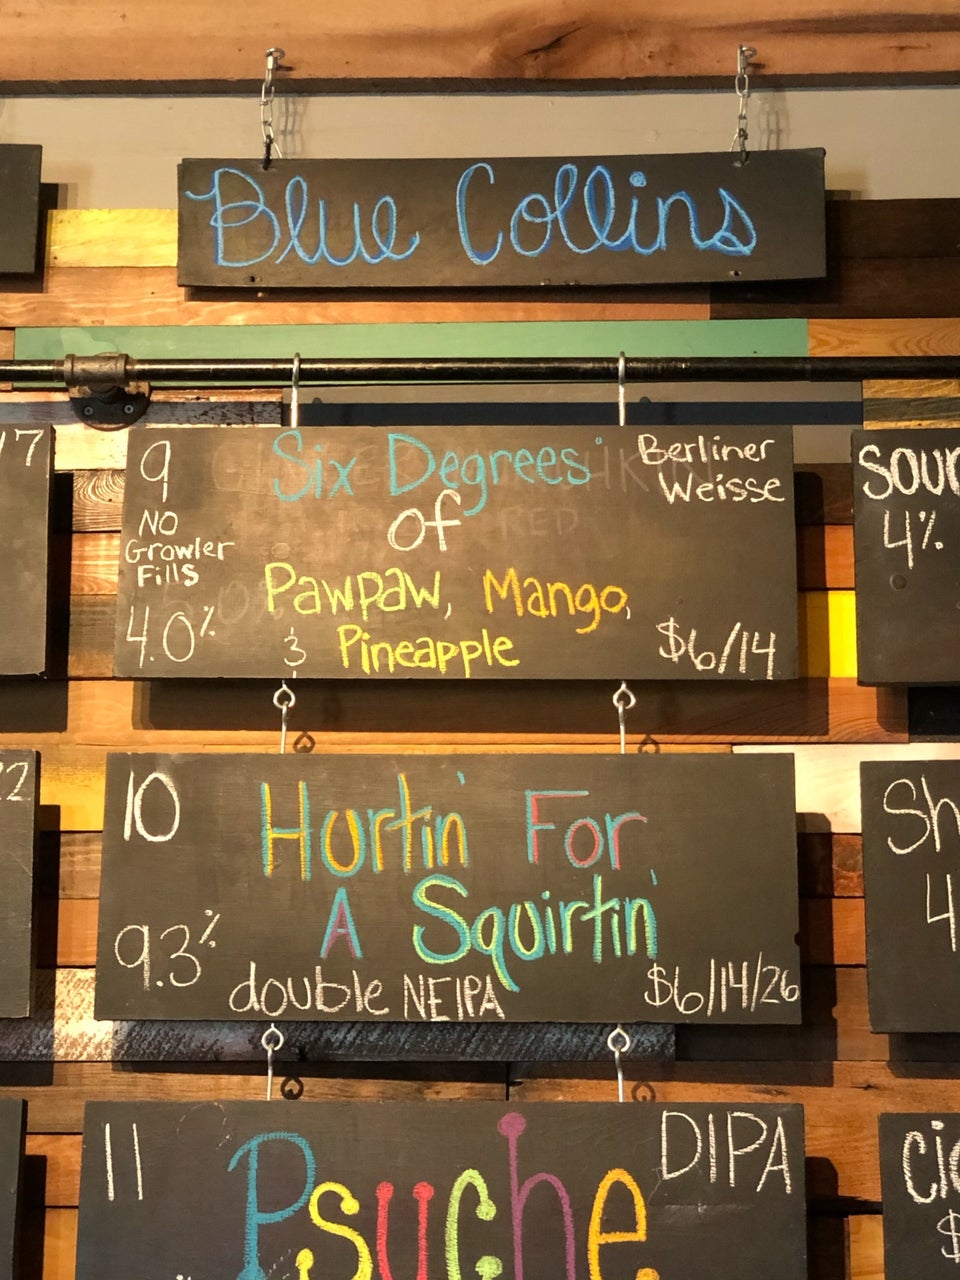 Blue Collins
17
9
Six Degrees
Berliner
Weisse
of
NO
Growler
Fills
Pawpaw, Mango,
4.0%
& Pineapple
$6/14
Sour
4%
10
Hurtin' For
A Squirtin'
9.3%
double NEIPA
$6/14/26
22
Sh
4
11
DIPA
Psyche
cid
$